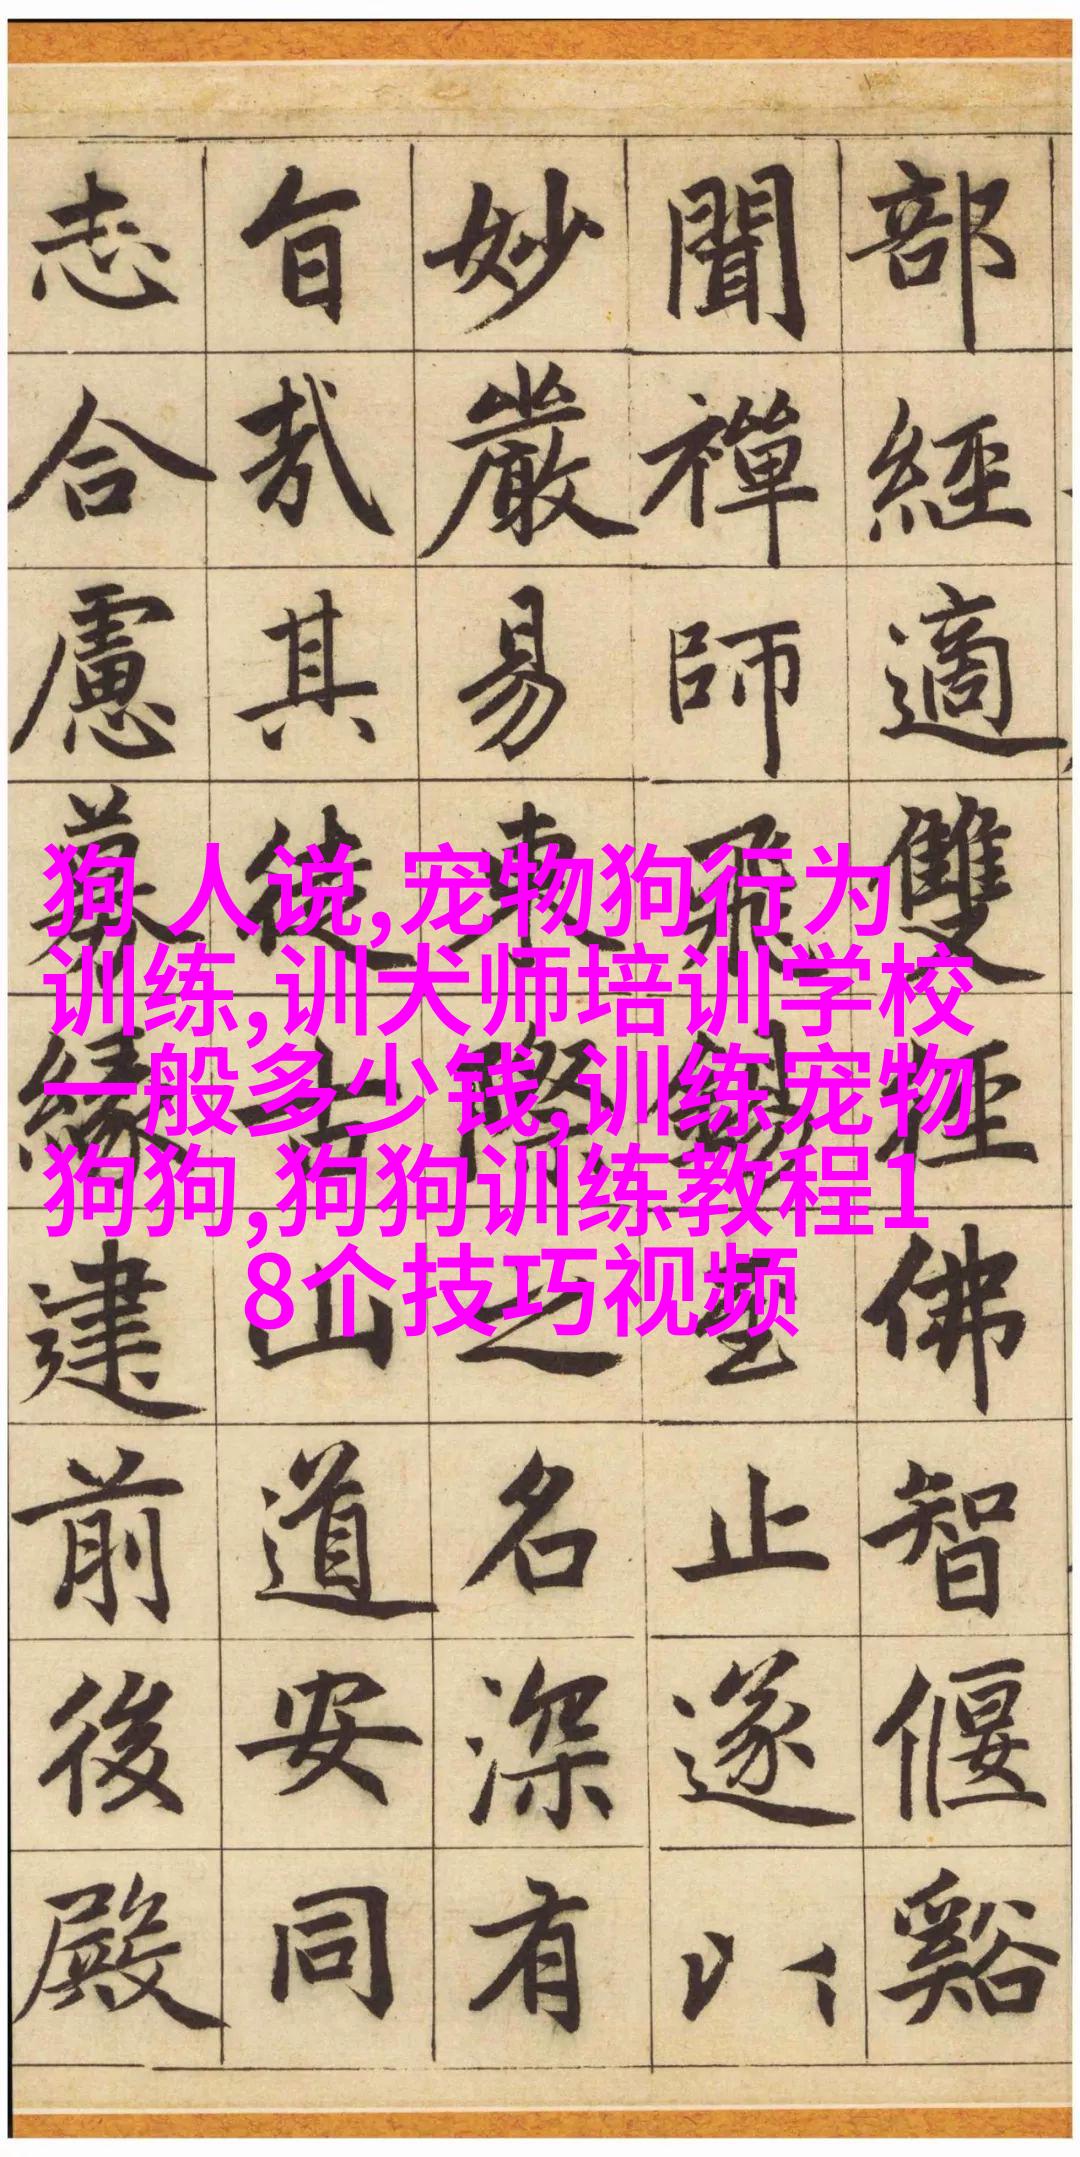 狗 人说,宠物狗行为
训练,训犬师培训学校
一般多少钱,训练宠物
狗狗,狗狗训练教程1
8个技巧视频
部經適雙徑佛智偃谿
聞禪師飛錫至止遂以
妙嚴易東際之名深有
旨哉其徒古山道安同
志合慮募緣建前後殿